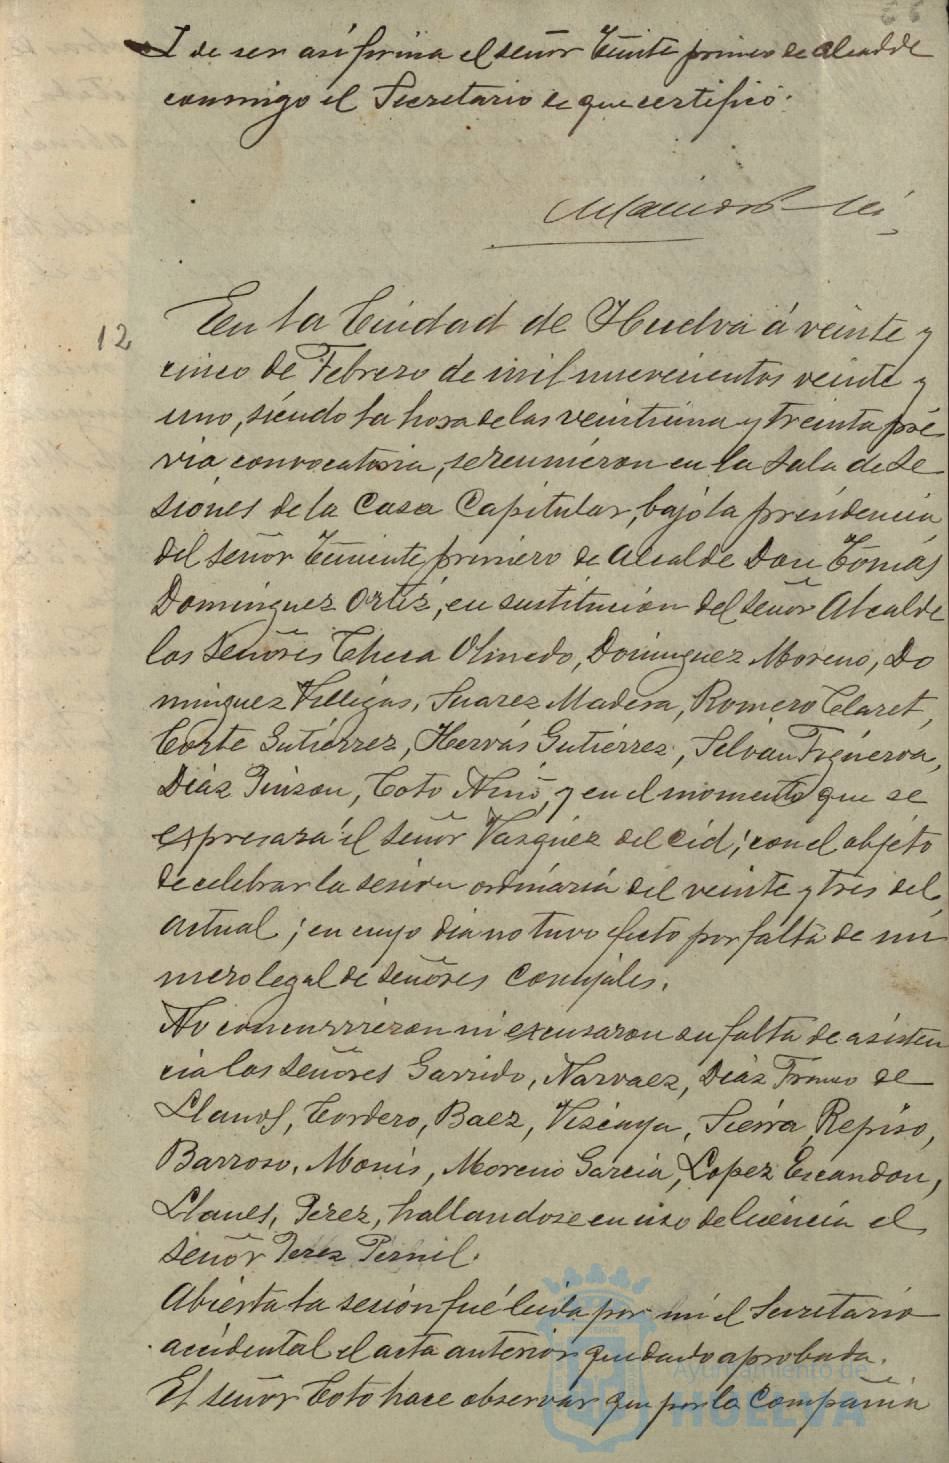 I de ser así firma el señor Teniente primero de Alcalde
conmigo el Secretario de que certifico.
12
En la Ciudad de Huelva á veinte y
cinco de Febrero de mil novecientos veinte y
uno, siendo la hora de las veintiuna y treinta pré
via convocatoria, se reunieron en la Sala de Se
siones de la Casa Capitular, bajo la presidencia
del señor Teniente primero de Alcalde Don Tomás
Dominguez Ortiz, en sustitución del señor Alcalde
los Señores Checa Olmedo, Dominguez Moreno, Do
minguez Villegas, Suarez Madera, Romero Claret,
Corte Gutiérrez, Hervás Gutiérrez, Selván Figueroa,
Diáz Pinzon, Toto Niño, y en el momento que se
expresará el señor Vazquez del Cid; con el objeto
de celebrar la sesión ordinaria del veinte y tres del
actual; en cuyo dia no tuvo efecto por falta de nú
mero legal de señores Concejales.
No concurrieron ni excusaron su falta de asisten
cia los señores Garrido, Narvaez, Diáz Franco de
Llanos, Cordero, Baez, Vizcaya, Sierra, Repiso,
Barroso, Monis, Moreno Garcia, Lopez Escandon,
Llanes, Perez, hallandose en uso de licencia el
señor Perez Pernil.
Abierta la sesión fué leida por mi el Secretario
accidental el acta anterior quedando aprobada.
El señor Toto hace observar que por la Compañia
Ayuntamiento de
HUELVA